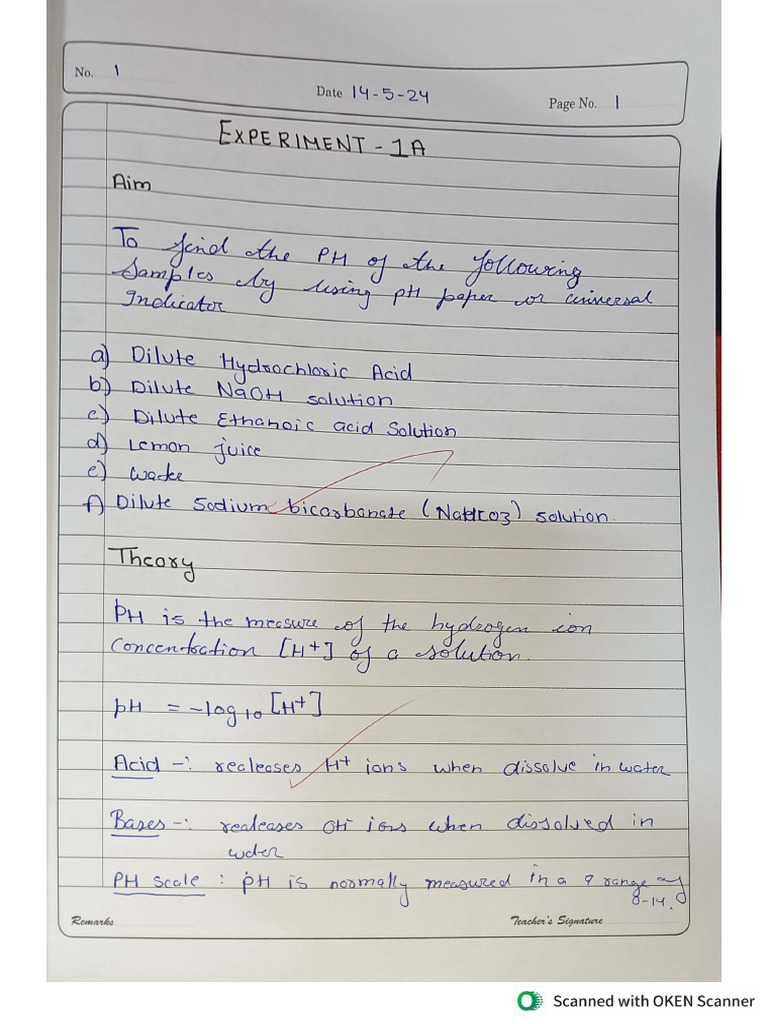 No. 1
Date 14-5-24
Page No. 1
EXPERIMENT - 1A
Aim
To find the PH of the following
Samples by using pH paper or universal
Indicator
a) Dilute Hydrochloric Acid
b) Dilute NaOH solution
c) Dilute Ethanoic acid Solution
d) Lemon juice
e) Water
f) Dilute Sodium bicarbonate (NaHCO3) solution.
Theory
PH is the measure of the hydrogen ion
Concentration [H+] of a solution.
pH = -log10 [H+]
Acid -: realeases H+ ions when dissolve in water
Bases -: realeases OH- ions when dissolved in
water
PH scale : pH is normally measured in a range of
0-14.
Remarks
Teacher's Signature
Scanned with OKEN Scanner